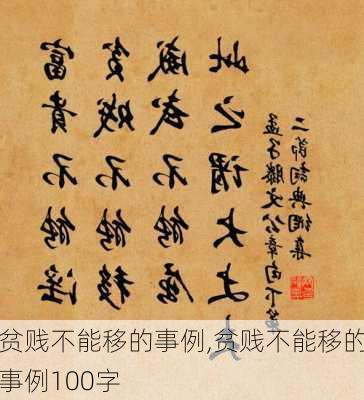 富貴不能淫
贫贱不能移
威武不能屈
此之谓大丈夫
孟子滕文公章句下
贫贱不能移的事例,贫贱不能移的
事例100字